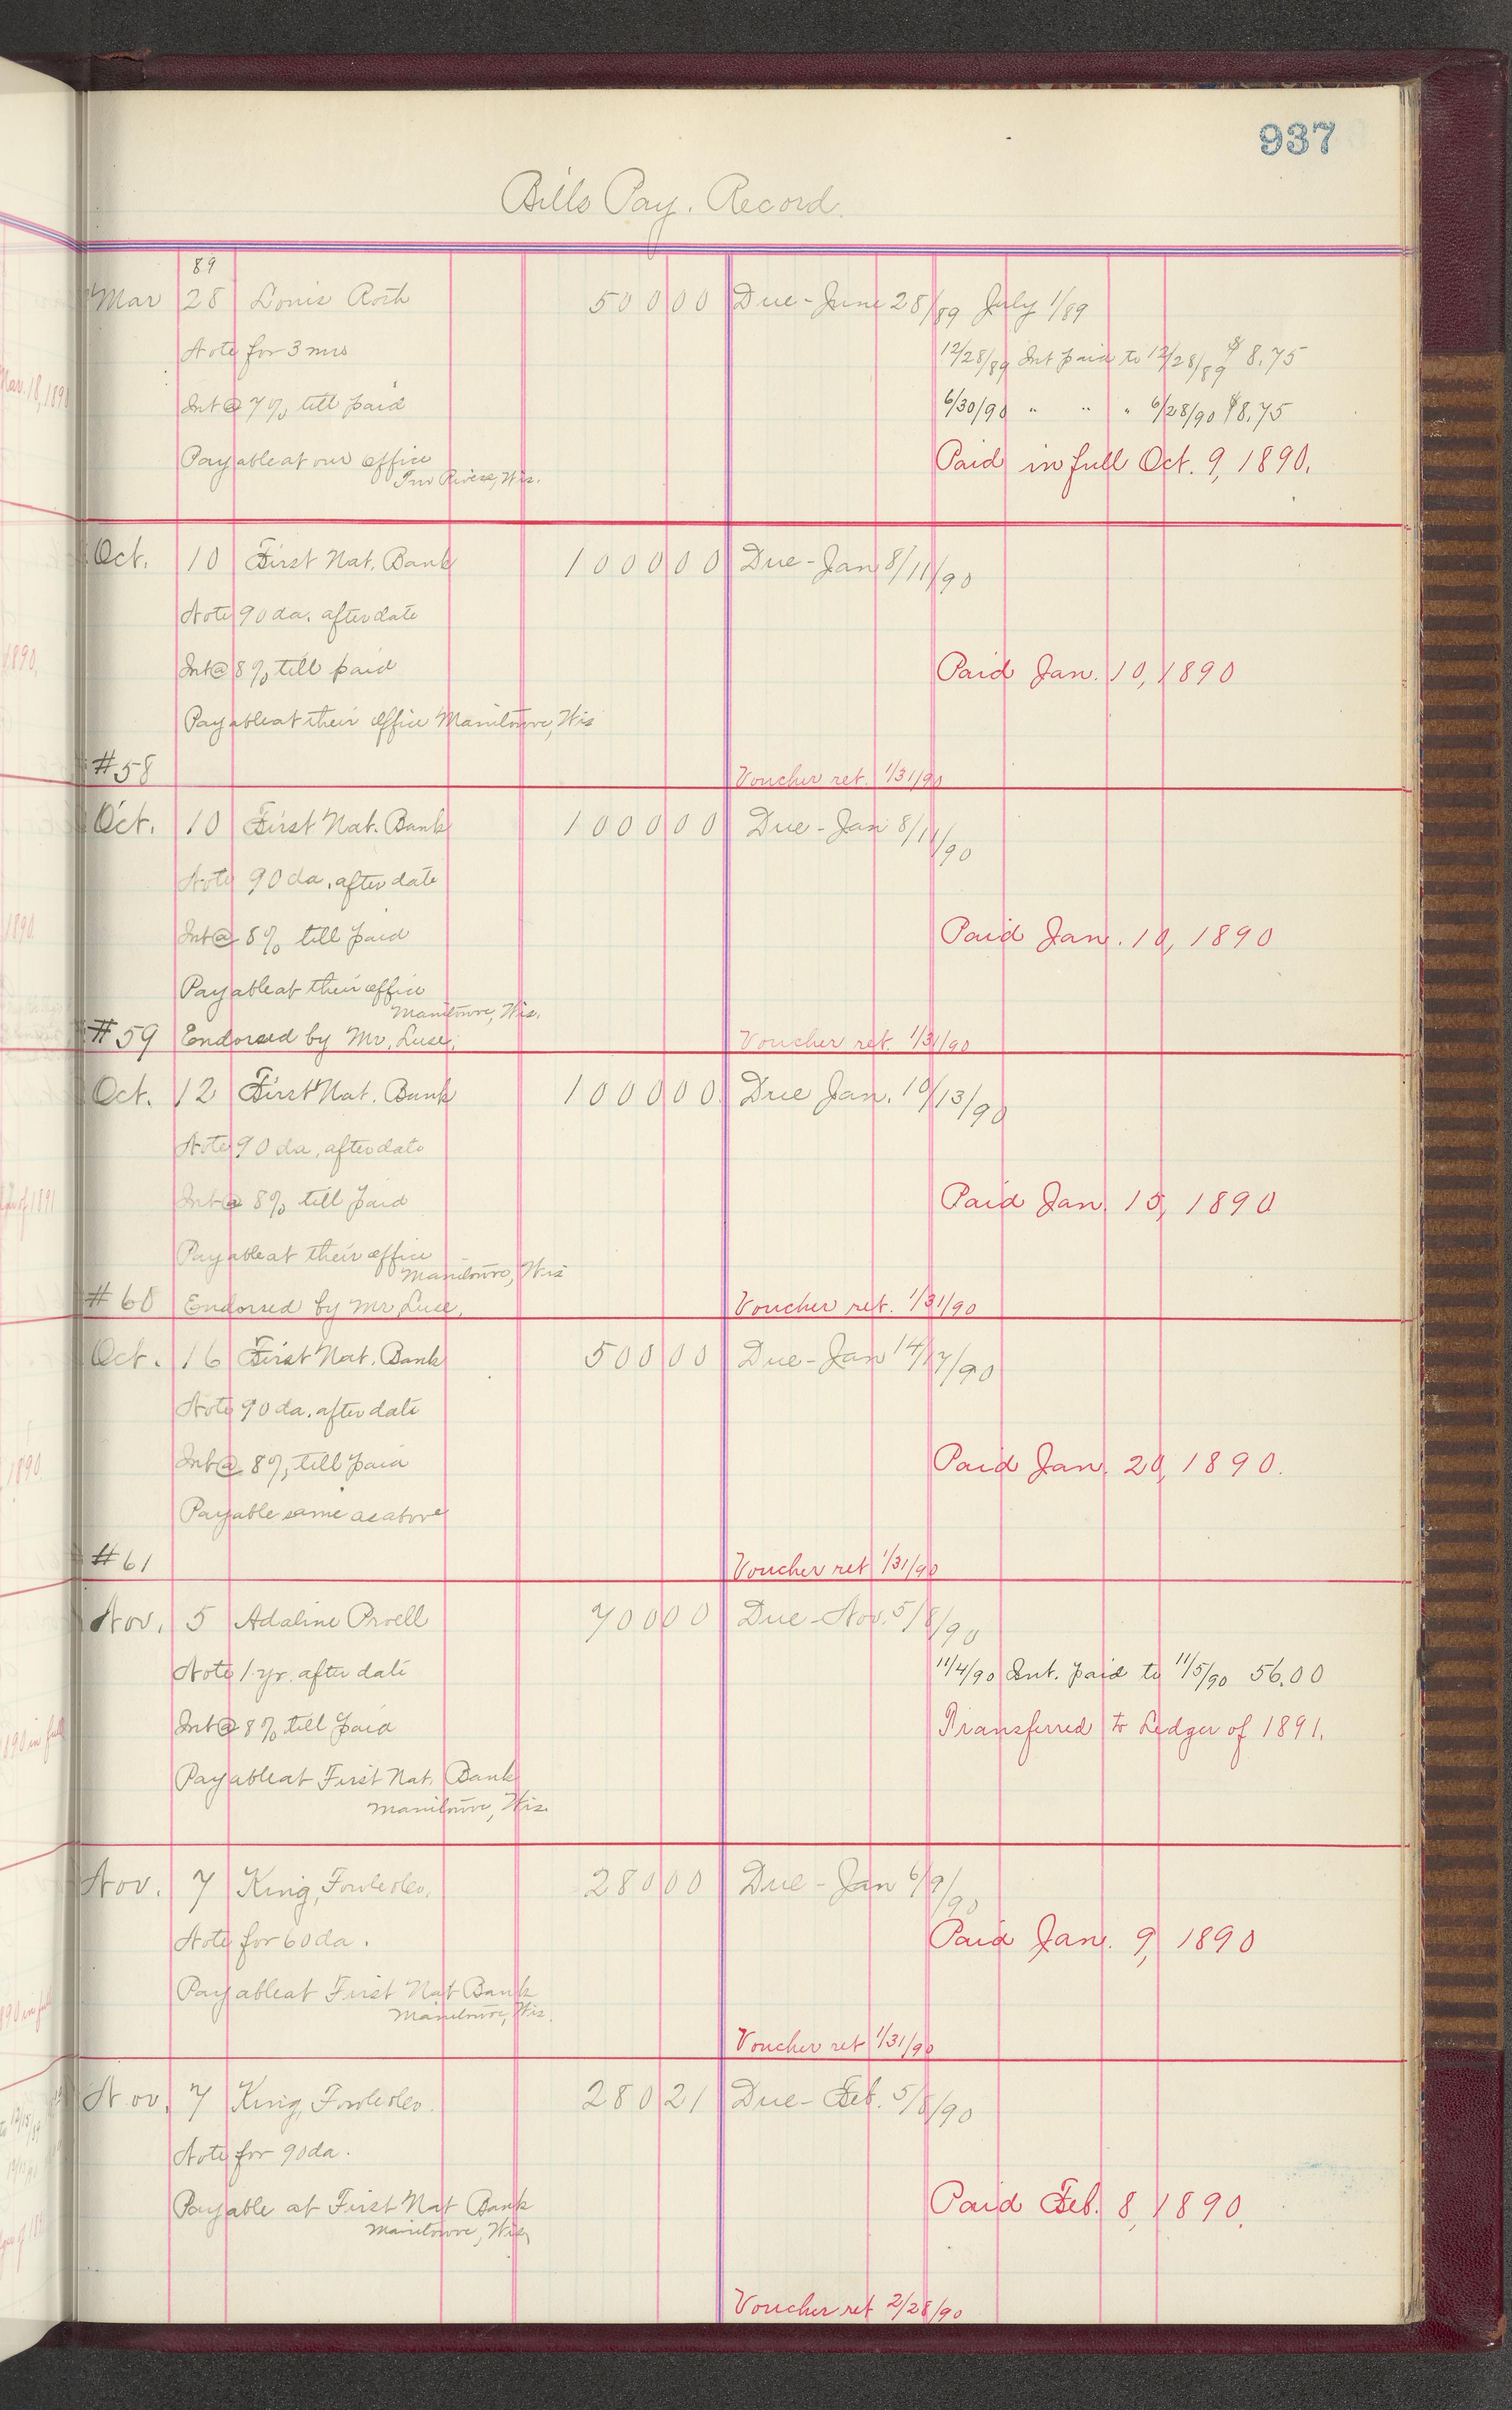 937
Bills Pay. Record.
89
Mar 28 Louis Roth 500 00 Due - June 28/89 July 1/89
Note for 3 mos 12/28/89 Int paid to 12/28/89 $8.75
Int @ 7% till paid 6/30/90 " " " 6/28/90 $8.75
Payable at our office Paid in full Oct. 9, 1890.
Two Rivers, Wis.
Oct. 10 First Nat. Bank 1000 00 Due - Jan 8/11/90
Note 90 da. after date
Int @ 8% till paid Paid Jan. 10, 1890
Payable at their office Manitowoc, Wis
#58 Voucher ret. 1/31/90
Oct. 10 First Nat. Bank 1000 00 Due - Jan 8/11/90
Note 90 da. after date
Int @ 8% till paid Paid Jan. 10, 1890
Payable at their office
Manitowoc, Wis.
#59 Endorsed by Mr. Luse. Voucher ret. 1/31/90
Oct. 12 First Nat. Bank 1000 00 Due Jan. 10/13/90
Note 90 da. after date
Int @ 8% till paid Paid Jan. 15, 1890
Payable at their office
Manitowoc, Wis
#60 Endorsed by Mr. Luse. Voucher ret. 1/31/90
Oct. 16 First Nat. Bank 500 00 Due - Jan 14/17/90
Note 90 da. after date
Int @ 8% till paid Paid Jan. 20, 1890.
Payable same as above
#61 Voucher ret 1/31/90
Nov. 5 Adaline 700 00 Due - Nov. 5/8/90
Note 1 yr. after date 11/4/90 Int. paid to 11/5/90 56.00
Int @ 8% till paid Transferred to Ledger of 1891.
Payable at First Nat. Bank
Manitowoc, Wis.
Nov. 7 King, 280 00 Due - Jan 6/9/90
Note for 60 da. Paid Jan. 9, 1890
Payable at First Nat Bank
Manitowoc, Wis.
Voucher ret 1/31/90
Nov. 7 King, 280 21 Due - Feb. 5/8/90
Note for 90 da.
Payable at First Nat Bank Paid Feb. 8, 1890.
Manitowoc, Wis,
Voucher ret 2/28/90